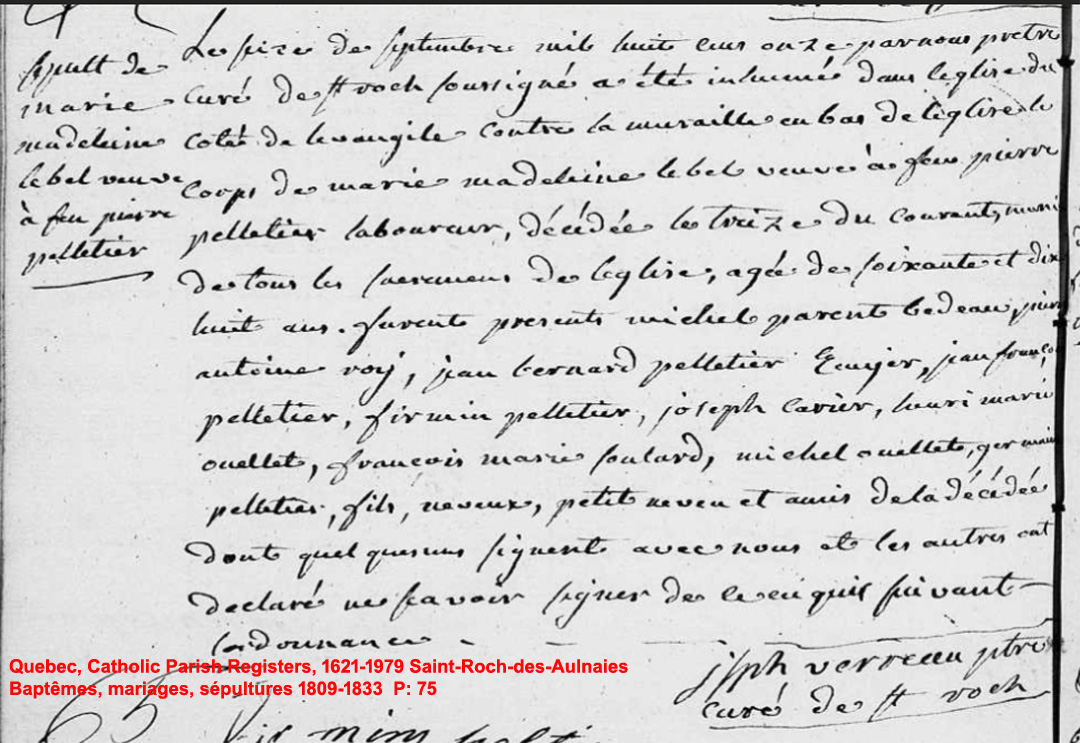 Sepult de
marie
madeleine
lebel veuve
à feu pierre
pelletier
Le seize de septembre mil huit cens onze par nous pretre
curé de St roch soussigné a été inhumée dans l'eglise du
coté de levangile contre la muraille en bas de l'église le
corps de marie madeleine lebel veuve à feu pierre
pelletier laboureur, décédée le treize du courant, munie
de tous les sacremens de leglise, agée de soixante et dix
huit ans. furent presents michel parent bedeau, pierre
antoine roy, jean bernard pelletier Ecuyer, jean françois
pelletier, firmin pelletier, joseph cavier, henri marie
ouellet, francois marie soulard, michel ouellet, germain
pelletier, fils, neveux, petit neveu et amis de la décédée
dont quelquesuns signent avec nous et les autres ont
declaré ne savoir signer de ce enquis suivant
lordonnance
jsph verreau ptre
curé de St roch
Quebec, Catholic Parish Registers, 1621-1979 Saint-Roch-des-Aulnaies
Baptêmes, mariages, sépultures 1809-1833 P: 75